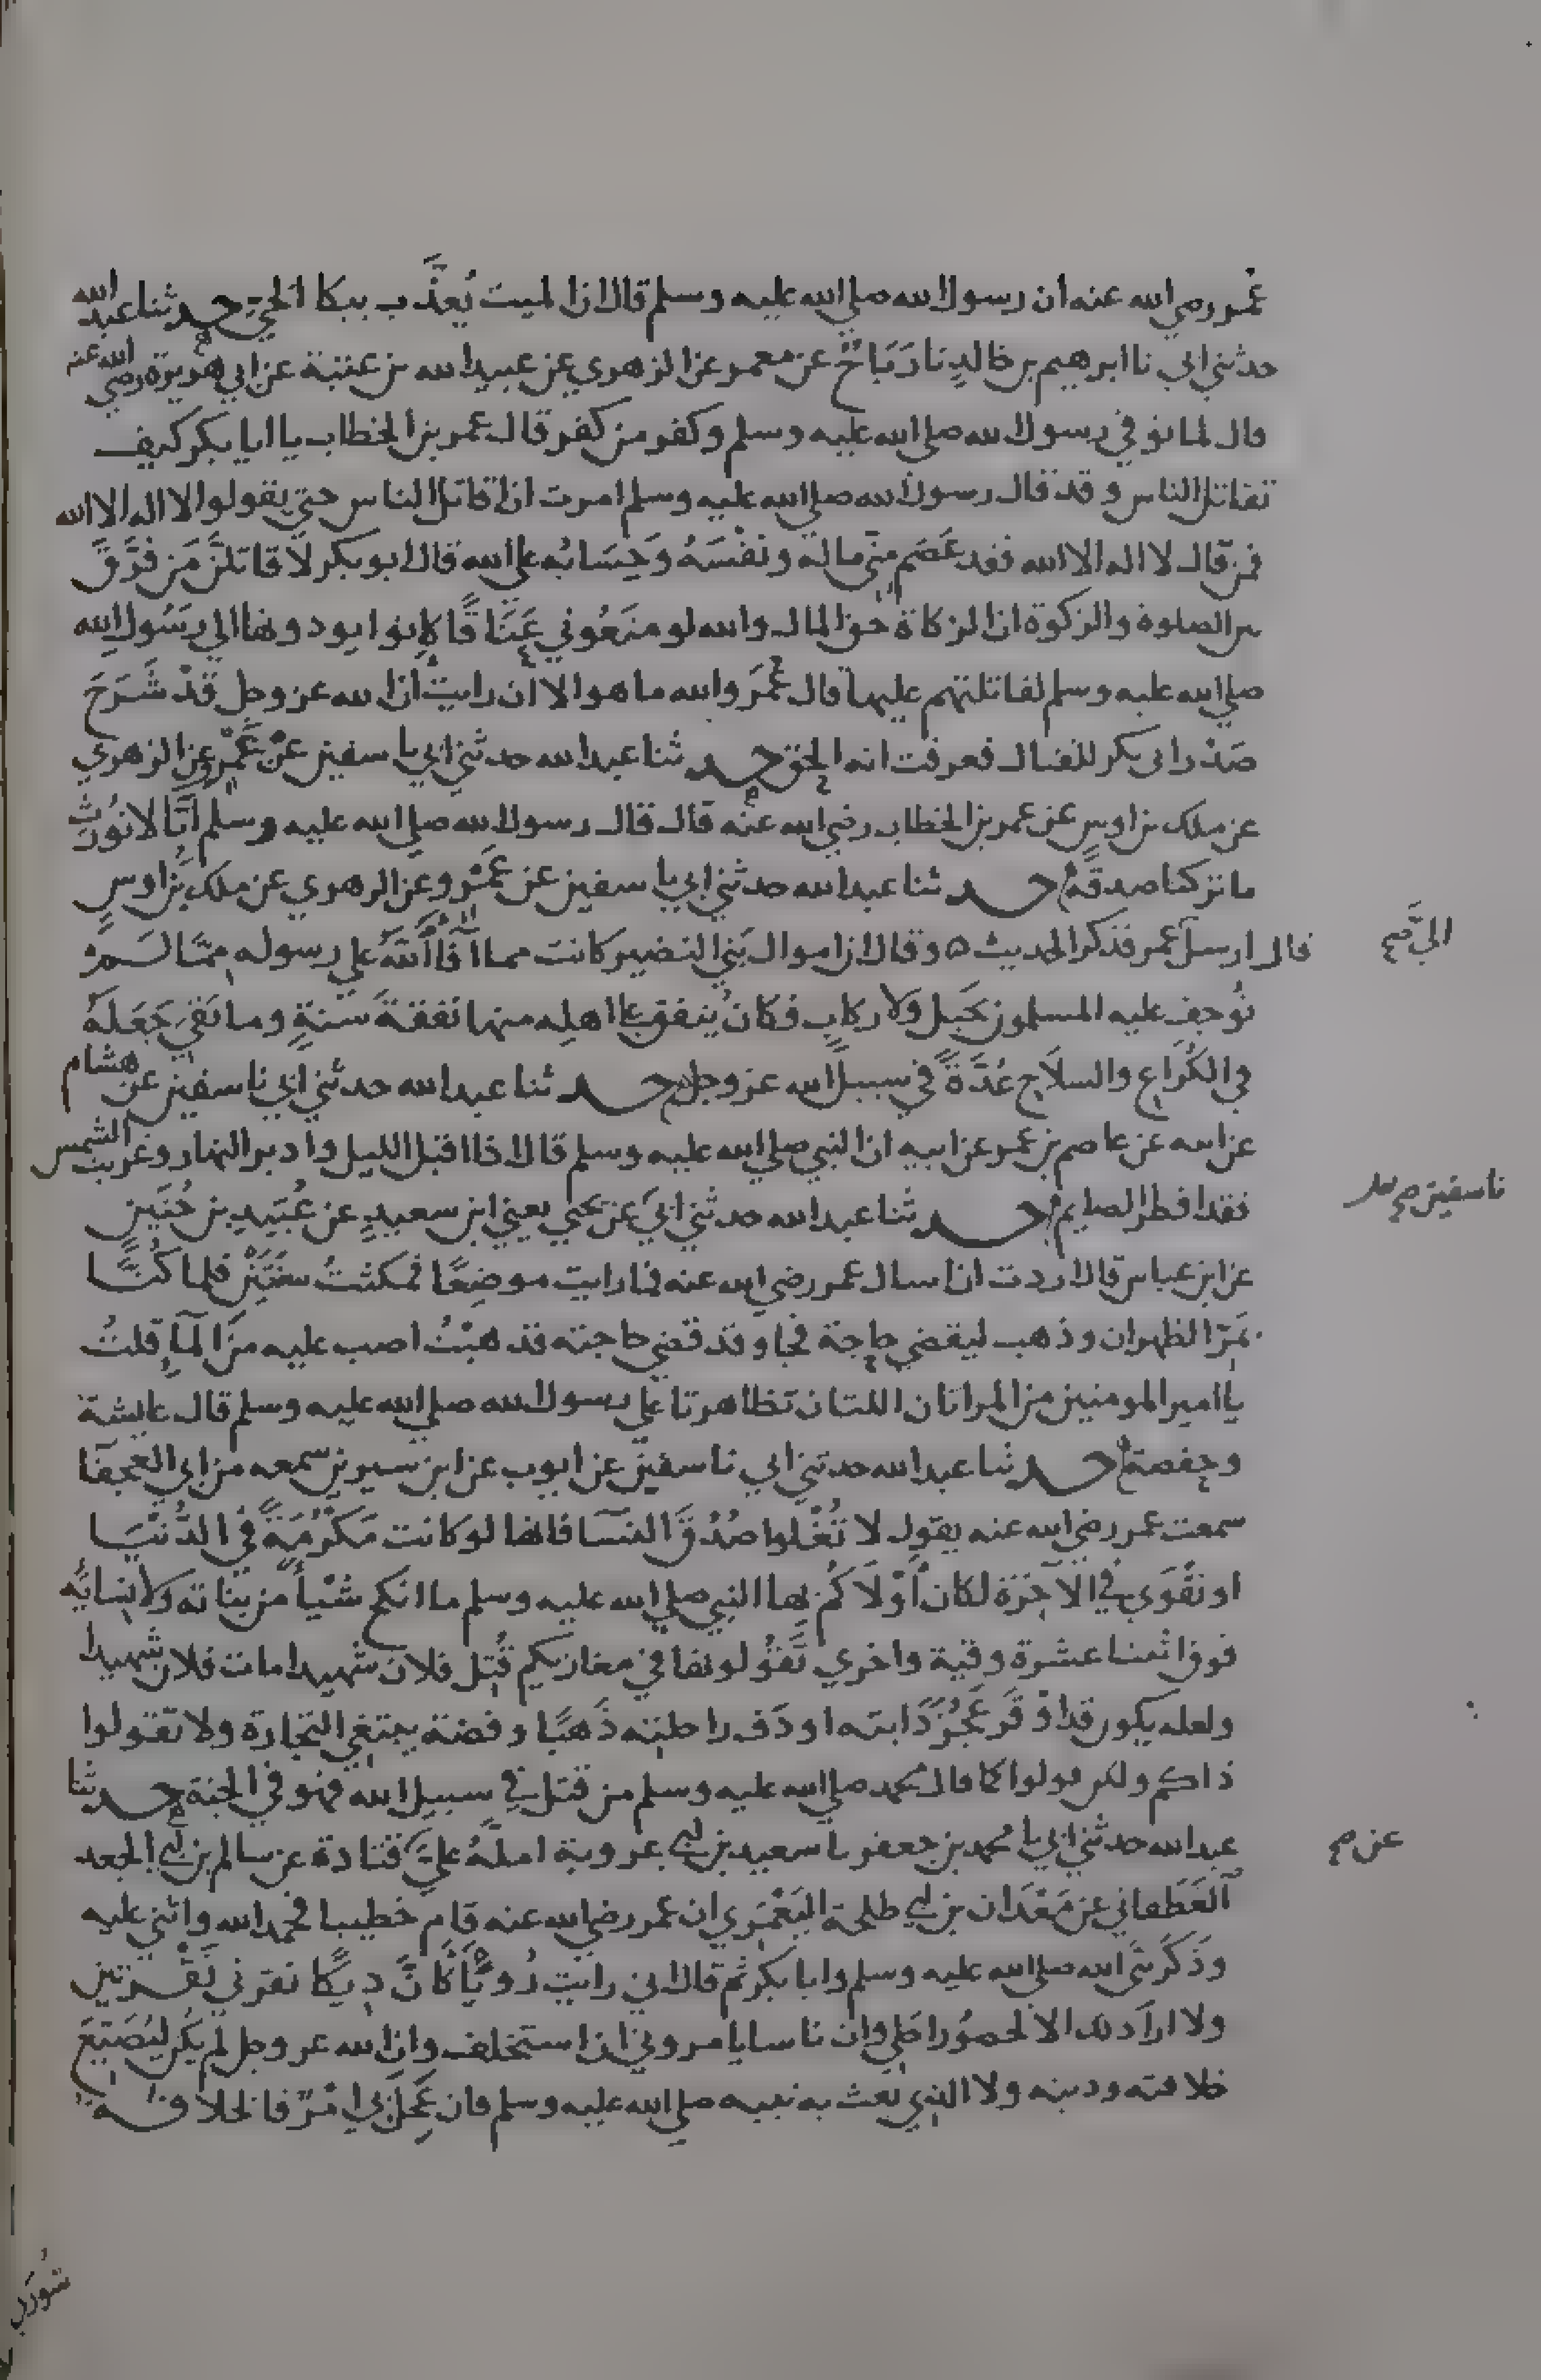 عمر رضي الله عنه ان رسول الله صلي الله عليه وسلم قال ان الميت يُعذَّب ببكا الحيّ حدثنا عبد الله
حدثني ابي نا ابرهيم بن خالد نا رَبَاحٌ عن معمر عن الزهري عن عبيد الله بن عتبة عن ابي هريرة رضي الله عنه
قال لما توفي رسول الله صلي الله عليه وسلم وكفر من كفر قال عمر بن الخطاب يا ابا بكر كيف
تقاتل الناس وقد قال رسول الله صلي الله عليه وسلم امرت ان اقاتل الناس حتي يقولوا لا اله الا الله
فمن قال لا اله الا الله فقد عَصَم منّي ماله ونفْسَهُ وَحِسَابُه علي الله قال ابو بكر لأقاتلنَّ مَن فرَّقَ
بين الصلوة والزكوة ان الزكاة حق المال والله لو منَعُوني عَنَاقًا كانوا يودونها الي رَسُول الله
صلي الله عليه وسلم لقاتلتهم عليها قال عُمَرَ والله ما هو الا ان رايتُ ان الله عز وجل قَدْ شَرَحَ
صَدْر ابي بكر للقتال فعرفت انه الحق حدثنا عبد الله حدثني ابي نا سفين عنْ عَمْرو عن الزهري
عن ملك بن اوس عن عمر بن الخطاب رضي الله عنه قال قال رسول الله صلي الله عليه وسلم انَّا لا نُورَث
ما تركنا صدقةٌ حدثنا عبد الله حدثني ابي نا سفين عن عَمْرو عن الزهري عن ملك بن اوس
قال ارسل عمر فذكر الحديث ه وقال ان اموال بَني النضير كانت مما أفَاَ اللَّهُ علي رسوله مِمَّا لَمْ
اليَّ صح
نُوجِف عليه المسلمون بخَيل ولا ركاب فكان يُنفق علي اهلِه منها نفقةَ سَنةٍ وما بَقيَ جَعَلَهُ
في الكُرَاع والسلاح عُدَّةً في سبيل الله عز وجل حدثنا عبد الله حدثني ابي نا سفين عن هشام
عن ابيه عن عاصم بن عمر عن ابيه ان النبي صلي الله عليه وسلم قال اذا اقبل الليل وادبر النهار وغربت الشمس
فقد افطر الصايم حدثنا عبد الله حدثني ابي عن يحيي يعني ابن سعيدٍ عن عُبَيدِ بن حُنَينٍ
نا سفين صح
عن ابن عباس قال اردت ان اسال عمر رضي الله عنه فما رايت موضِعًا فمكثتُ سنتَيْن فلما كُنَّا
بمَرّ الظهران وذهب ليقضي حاجة فجا وقد قضي حاجته فذهبْتُ اصب عليه منَ المآءِ قلتُ
يا امير المومنين من المراتان اللتان تظاهرتا علي رسول الله صلي الله عليه وسلم قال عايشة
وحفصة حدثنا عبد الله حدثني ابي نا سفين عن ايوب عن ابن سيرين سمعه من ابي العجفآ
سمعت عمر رضي الله عنه يقول لا تُغْلوا صُدُقَ النسآ فانها لو كانت مَكْرُمَةً في الدُّنْيَا
او تقْوَي في الآخرة لكان أوْلاكُم بها النبي صلي الله عليه وسلم ما انكح شيْأً من بناته ولا نسايه
فوق اثنتا عشرة وقية واخري تَقُولونها في مغازيكم قُتِل فلان شهيدا مات فلان شهيدا
ولعله يكون قد اوْقَر عَجُزَ دَابته او دَف راحلته ذَهبًا وفضة يبتغي التجارة ولا تقولوا
ذاكم ولكن قولوا كما قال محمد صلي الله عليه وسلم من قتل في سبيل الله فهو في الجنة حدثنا
عبد الله حدثني ابي نا محمد بن جعفر نا سعيد بن ابي عروبة املَّهُ عليَّ قتادة عن سالم بن ابي الجعد
عن صح
الغَطَفاني عن مَعْدَان بن ابي طلحة اليَعْمَري ان عمر رضي الله عنه قام خطيبا فحمد الله واثني عليه
وذَكَر نبي الله صلي الله عليه وسلم وابا بكر ثم قال اني رايت رُويًا كَانَّ دِيكًا نقرني نَقْرتين
ولا اراَ ذلك الا لحضُور اجَلي وان ناسا يامروني ان استخلف وان الله عز وجل لم يكن ليُضَيّعَ
خلافته ودينه ولا الذي بعث به نبيه صلي الله عليه وسلم فان عَجِلَ بي امْرٌ فالخلافة
شُورَي